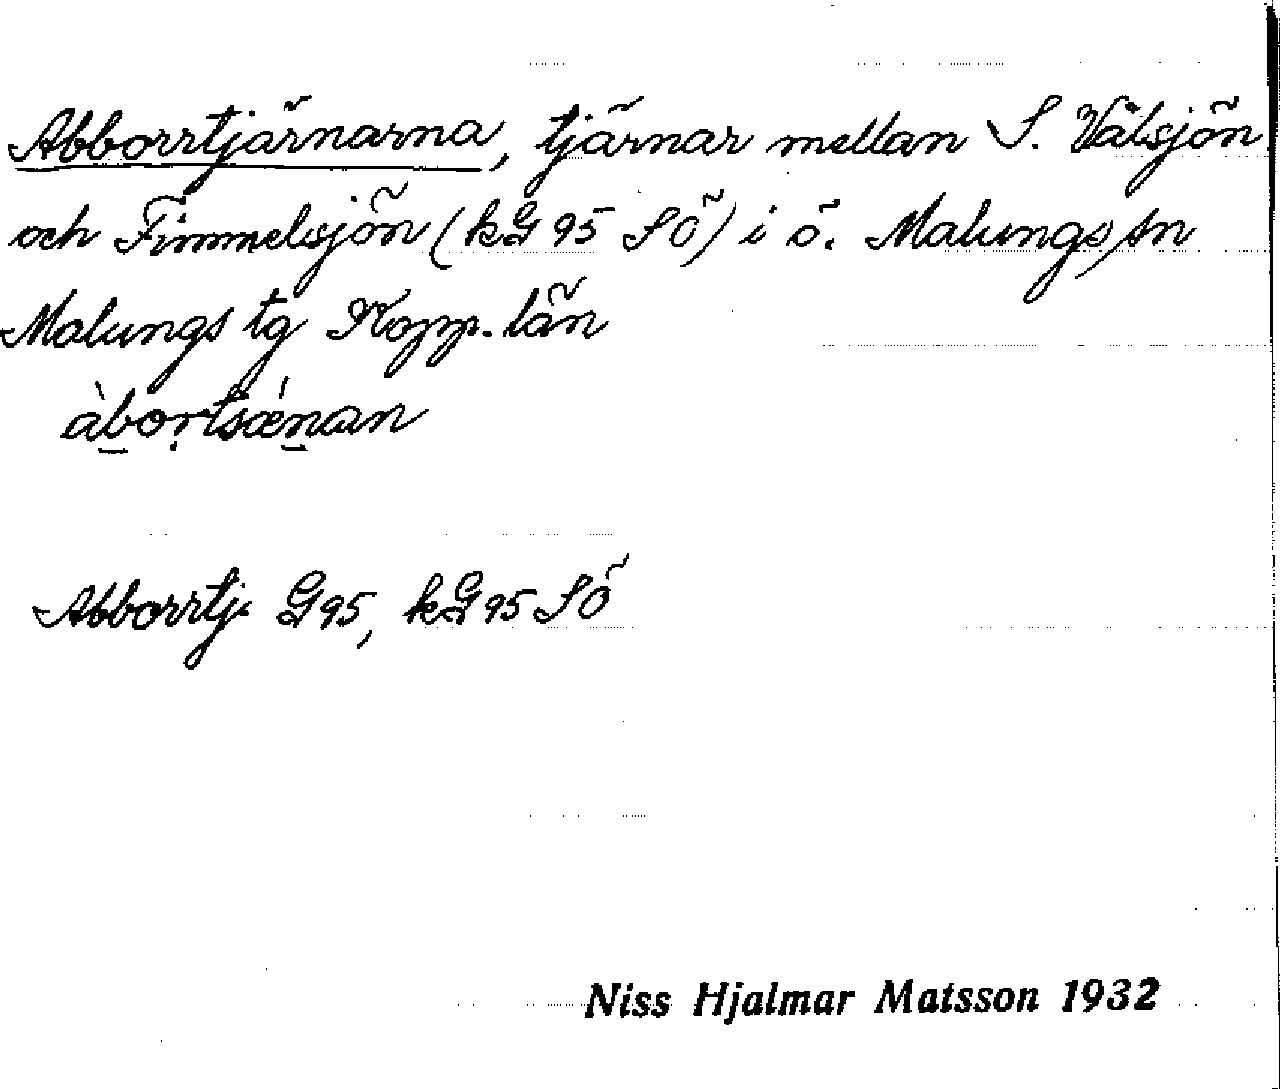 Abborrtjärnarna, tjärnar mellan S. Välsjön
och Fimmelsjön (kG 95 SÖ) i ö. Malungs sn
Malungs tg Kopp. län
àbo̤rtsǽnan
Abborrtj. G95, kG95 SÖ
Niss Hjalmar Matsson 1932